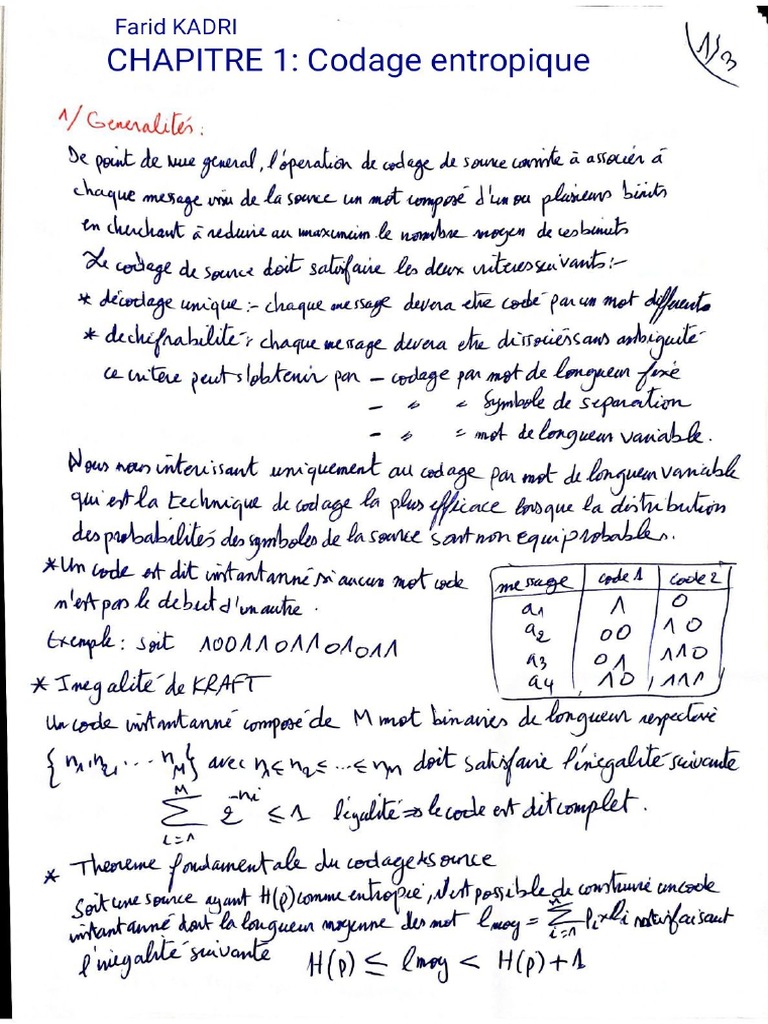 Farid KADRI
CHAPITRE 1: Codage entropique
1/3
1/ Generalités:
De point de vue general, l'óperation de codage de source consiste à associer à
chaque message issu de la source un mot composé d'un ou plusieurs binits
en cherchant à reduire au maximum le nombre moyen de ces binits
Le codage de source doit satisfaire les deux criteres suivants:-
* décodage unique:- chaque message devera etre codé par un mot differents
* dechifrabilité: chaque message devera etre dissociés sans ambiguité
ce critère peut s'obtenir par - codage par mot de longueur fixé
- " " Symbole de separation
- " = mot de longueur variable.
Nous nous interissant uniquement au codage par mot de longueur variable
qui est la technique de codage la plus efficace lorsque la distribution
des probabilités des symboles de la source sont non equiprobables.
* Un code est dit instantanné si aucun mot code
n'est pas le debut d'un autre.
Exemple: soit 1001101101011
message code 1 code 2
a1 1 0
a2 00 10
a3 01 110
a4 10 111
* Inegalité de KRAFT
Un code instantanné composé de M mot binaires de longueur respective
{n1, n2, ... nM} avec n1 ≤ n2 ≤ ... ≤ nM doit satisfaire l'inégalité suivante
∑_{i=1}^{M} 2^{-ni} ≤ 1 l'égalité ⇒ le code est dit complet.
* Theoreme fondamentale du codage source
Soit une source ayant H(p) comme entropie, il est possible de construire un code
instantanné dont la longueur moyenne des mot lmoy = ∑_{i=1}^{n} Pi × li satisfaisant
l'inégalité suivante H(p) ≤ lmoy < H(p)+1